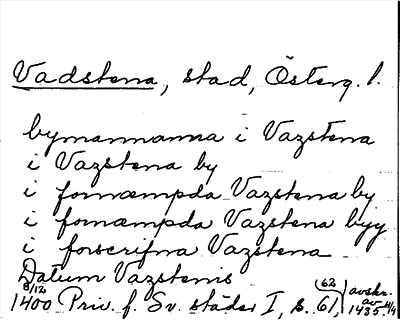 Vadstena, stad, Österg. l.
bymannanna i Vazstena
i Vazstena by
i fornæmpda Vazstena by
i fornæmpda Vazstena byg
i forscrifna Vazstena
Datum Vazstenis
8/12 1400 Priv. f. Sv. städer I, s. 61 (62) avskr. av 1435 4/9